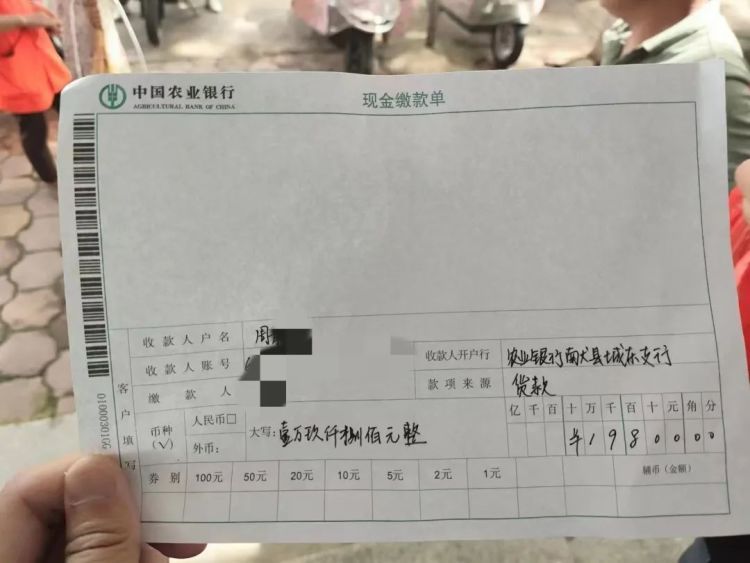 中国农业银行
AGRICULTURAL BANK OF CHINA
现金缴款单
收款人户名 周
收款人账号
收款人开户行 农业银行南犬县城东支行
缴款人
款项来源 货款
币种(√) 人民币□ 外币:
大写: 壹万玖仟捌佰元整
亿千百十万千百十元角分
¥1980000
客户填写
券别 100元 50元 20元 10元 5元 2元 1元 辅币(金额)